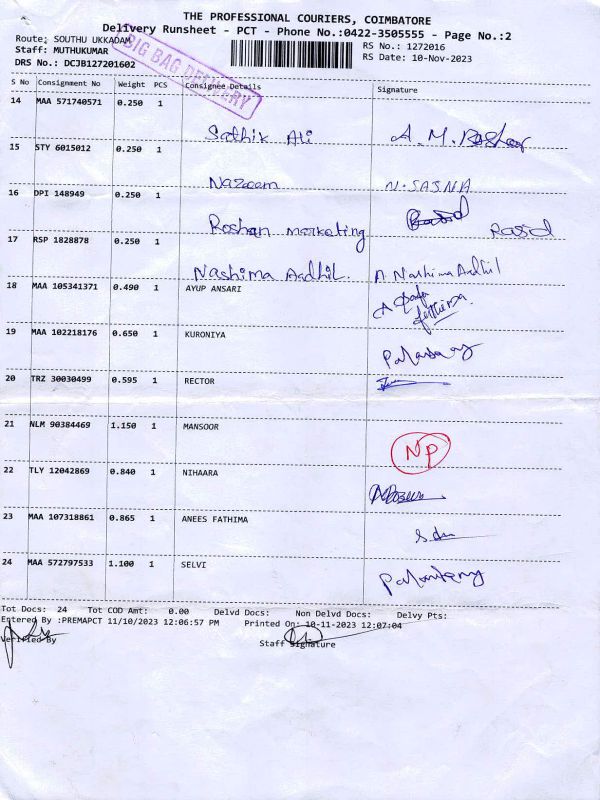 THE PROFESSIONAL COURIERS, COIMBATORE
Delivery Runsheet - PCT - Phone No.:0422-3505555 - Page No.:2
Route: SOUTHU UKKADAM
RS No.: 1272016
Staff: MUTHUKUMAR
RS Date: 10-Nov-2023
DRS No.: DCJB127201602
BIG BAG DELIVERY
S No Consignment No Weight PCS Consignee Details Signature
14 MAA 571740571 0.250 1
Sathik Ali
15 STY 6015012 0.250 1
Nazeem N.SASNA
16 DPI 148949 0.250 1
Roshan marketing Rasid
17 RSP 1828878 0.250 1
Nashima Aadhil. A Nashima Aadhil
18 MAA 105341371 0.490 1 AYUP ANSARI
19 MAA 102218176 0.650 1 KURONIYA
20 TRZ 30030499 0.595 1 RECTOR
21 NLM 90384469 1.150 1 MANSOOR
NP
22 TLY 12042869 0.840 1 NIHAARA
23 MAA 107318861 0.865 1 ANEES FATHIMA
24 MAA 572797533 1.100 1 SELVI
Tot Docs: 24 Tot COD Amt: 0.00 Delvd Docs: Non Delvd Docs: Delvy Pts:
Entered By :PREMAPCT 11/10/2023 12:06:57 PM Printed On: 10-11-2023 12:07:04
Verified By Staff Signature